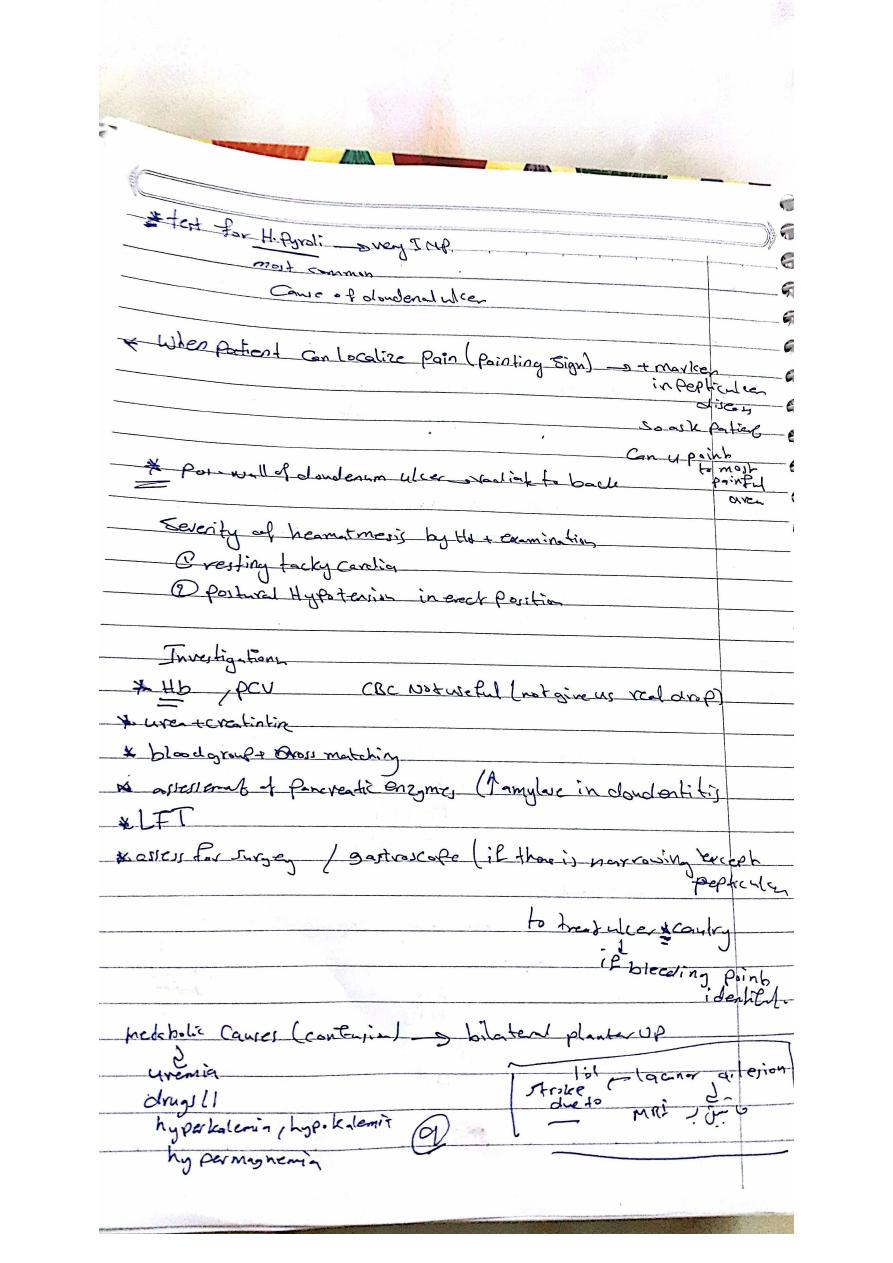 * test for H.Pyroli → very IMP.
most common
Cause of doudenal ulcer
* When patient can localize Pain (Pointing Sign) → + marker
in pepticulcer
diseas
So ask patient
Can u point
to most
painful
area
* Pos. wall of doudenum ulcer → radiate to back
Severity of heamatmesis by Hx + examination
① resting tacky cardia
② postural Hypotension in erect position
Investigations
* Hb , PCV CBC Not useful (not give us real drop)
* urea + creatintine
* blood group + cross matching
* assessemet of Pancreatic enzymes (↑ amylase in doudentitis
* LFT
* assess for surgey / gastroscope (if there is narrowing except
pepticulcer
to treat ulcer * Coutry
↓
if bleeding point
identif.
metabolic Causes (confusion) → bilateral planter UP
uremia
drugs !!
hyperkalemia, hypokalemia
hypermagnemia
9
stroke
due to
lacunar
MRI